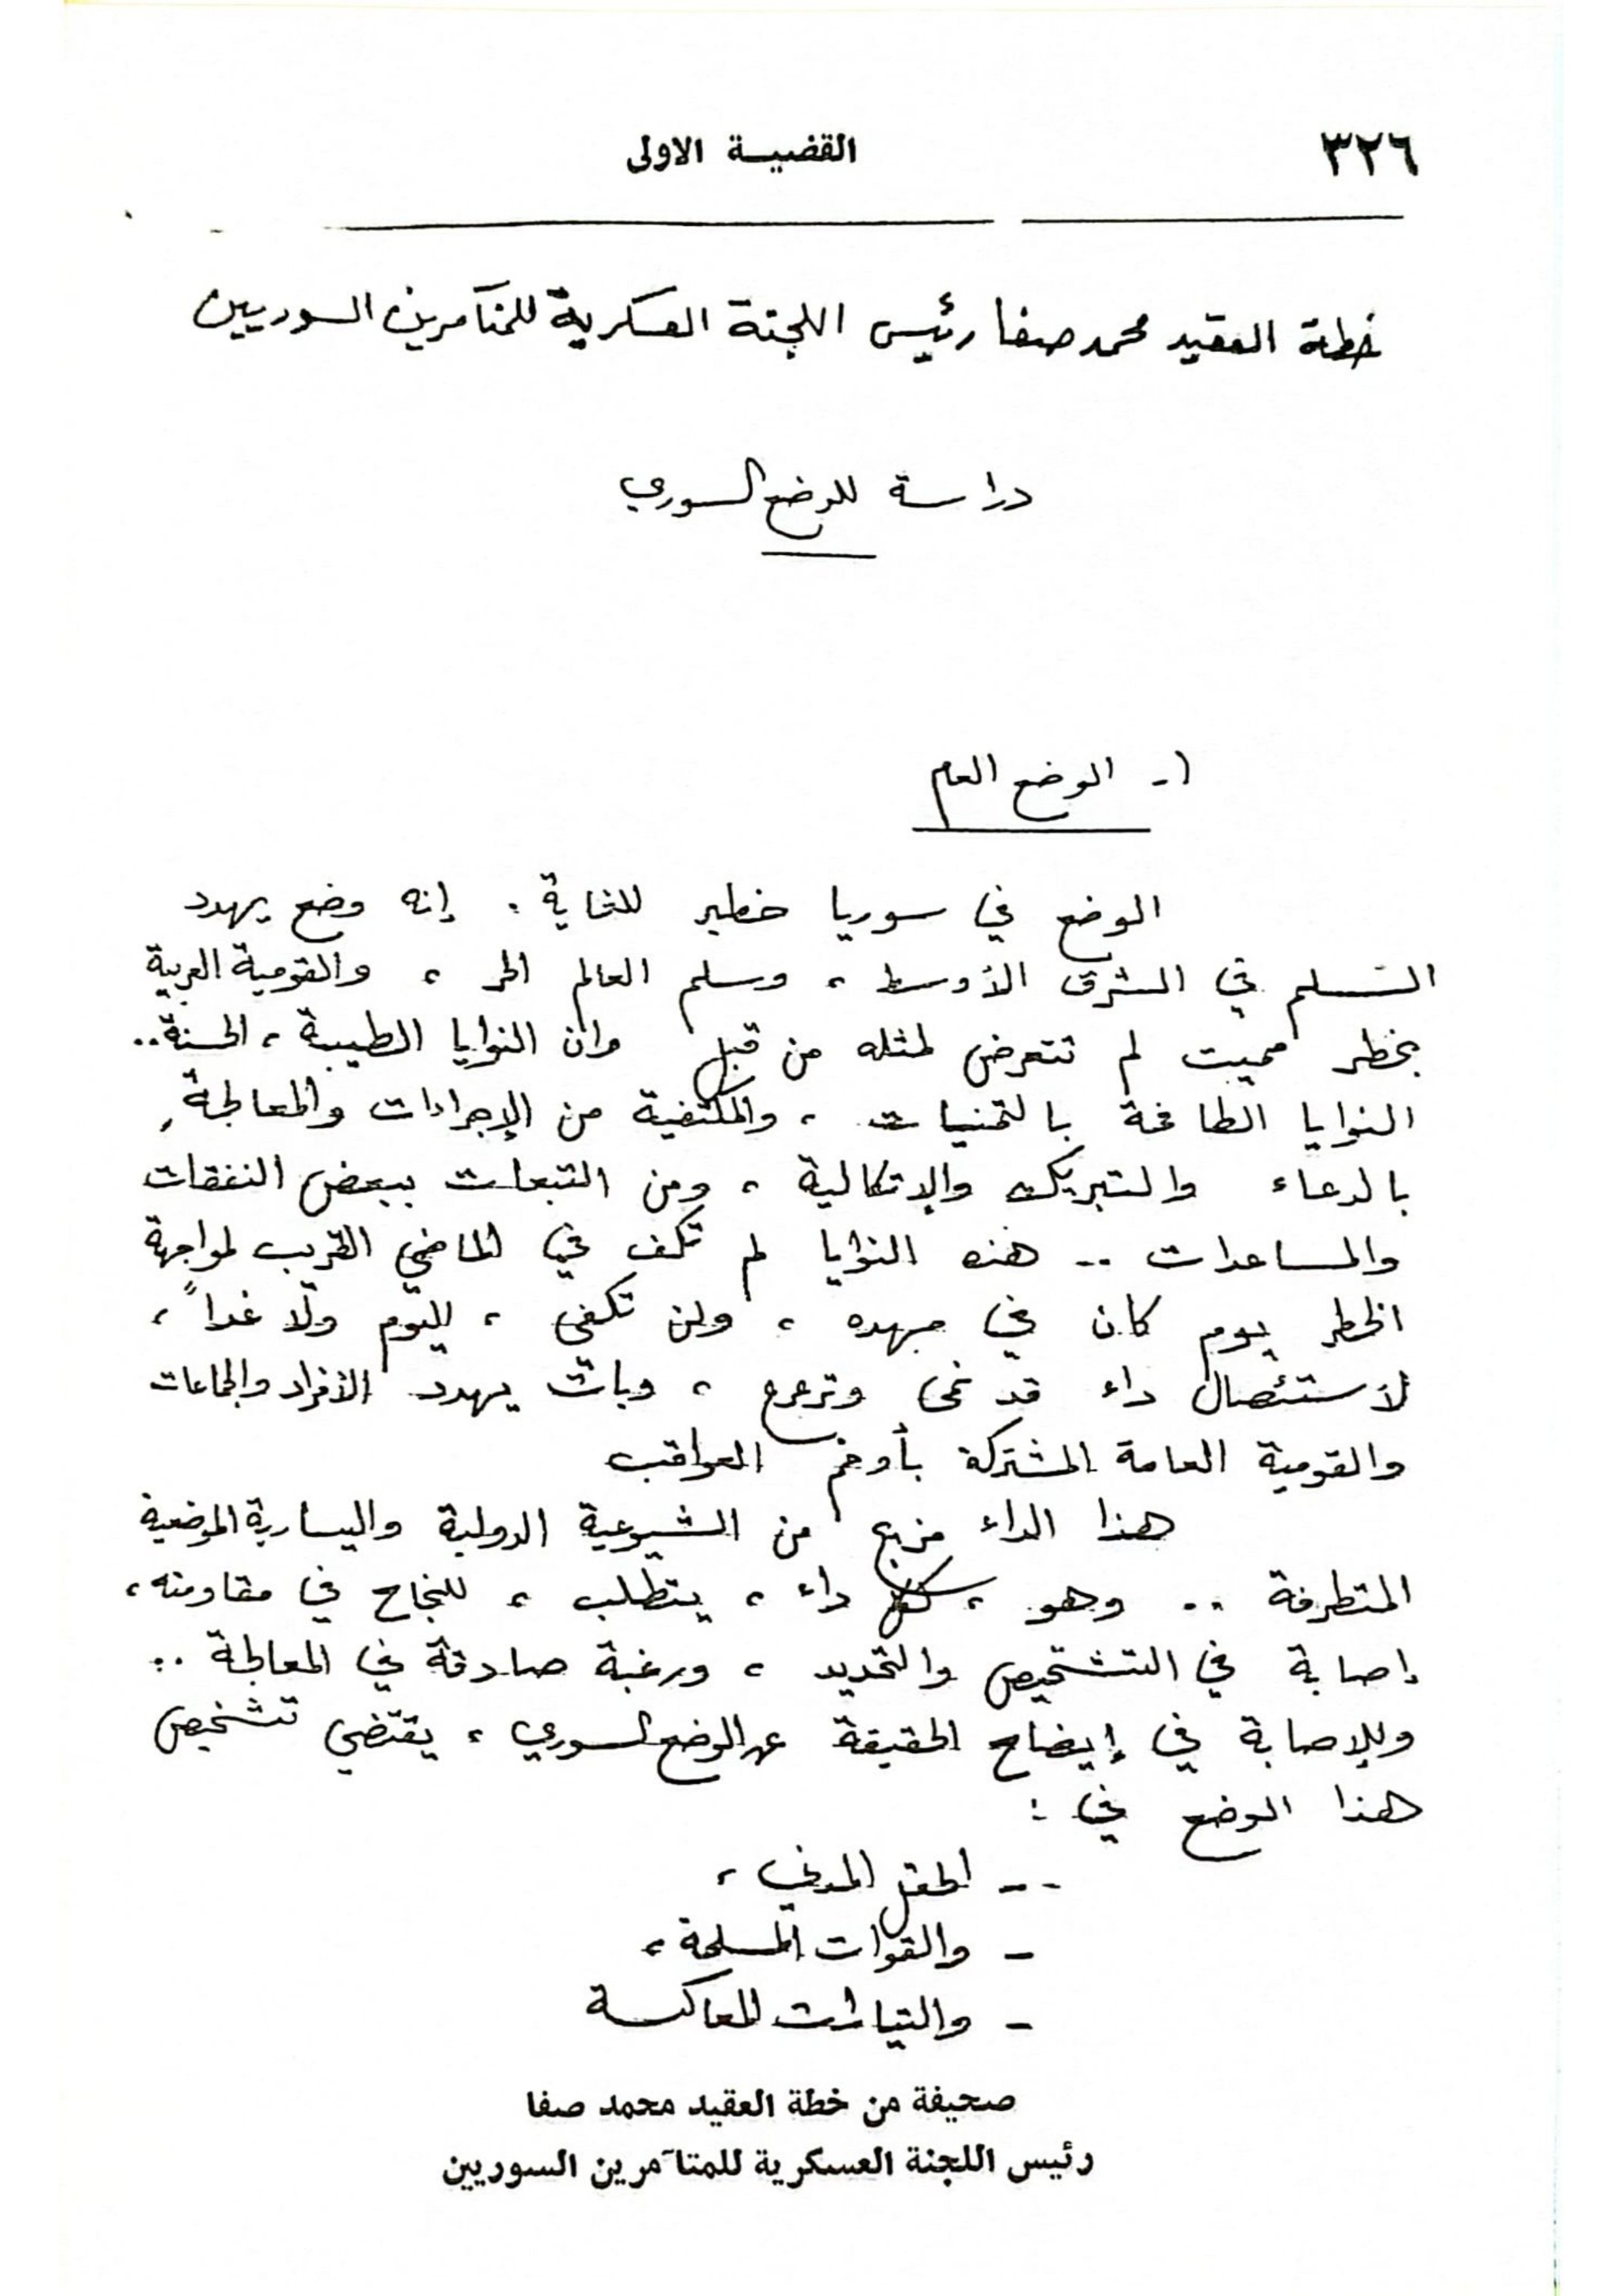 ٣٢٦
القضيـــة الاولى
خطة العقيد محمد صفا رئيس اللجنة العسكرية للمتآمرين السوريين
دراسة للوضع السوري
١- الوضع العام
الوضع في سوريا خطير للغاية . إنه وضع يهدد
السلم في الشرق الأوسط ، وسلم العالم الحر ، والقومية العربية
بخطر مميت لم تتعرض لمثله من قبل وان النوايا الطيبة ، الحسنة ..
النوايا الطافحة بالتمنيات ، والمكتفية من الإجراءات والمعالجة ,
بالدعاء والتبريك والإتكالية ، ومن التبعات ببعض النفقات
والمساعدات .. هذه النوايا لم تكف في الماضي القريب لمواجهة
الخطر يوم كان في مهده ، ولن تكفي ، لليوم ولا غداً ،
لأستئصال داء قد نمى وترعرع ، وبات يهدد الأفراد والجماعات
والقومية العامة المشتركة بأوخم العواقب
هذا الداء مزيج من الشيوعية الدولية واليسارية الموضعية
المتطرفة .. وهو ، ككل داء ، يتطلب ، للنجاح في مقاومته ،
إصابة في التشخيص والتحديد ، ورغبة صادقة في المعالجة ..
وللإصابة في إيضاح الحقيقة عن الوضع السوري ، يقتضي تشخيص
هذا الوضع في :
-- الحقل المدني ،
- والقوات المسلحة ،
- والتيارات المعاكسة
صحيفة من خطة العقيد محمد صفا
رئيس اللجنة العسكرية للمتآمرين السوريين